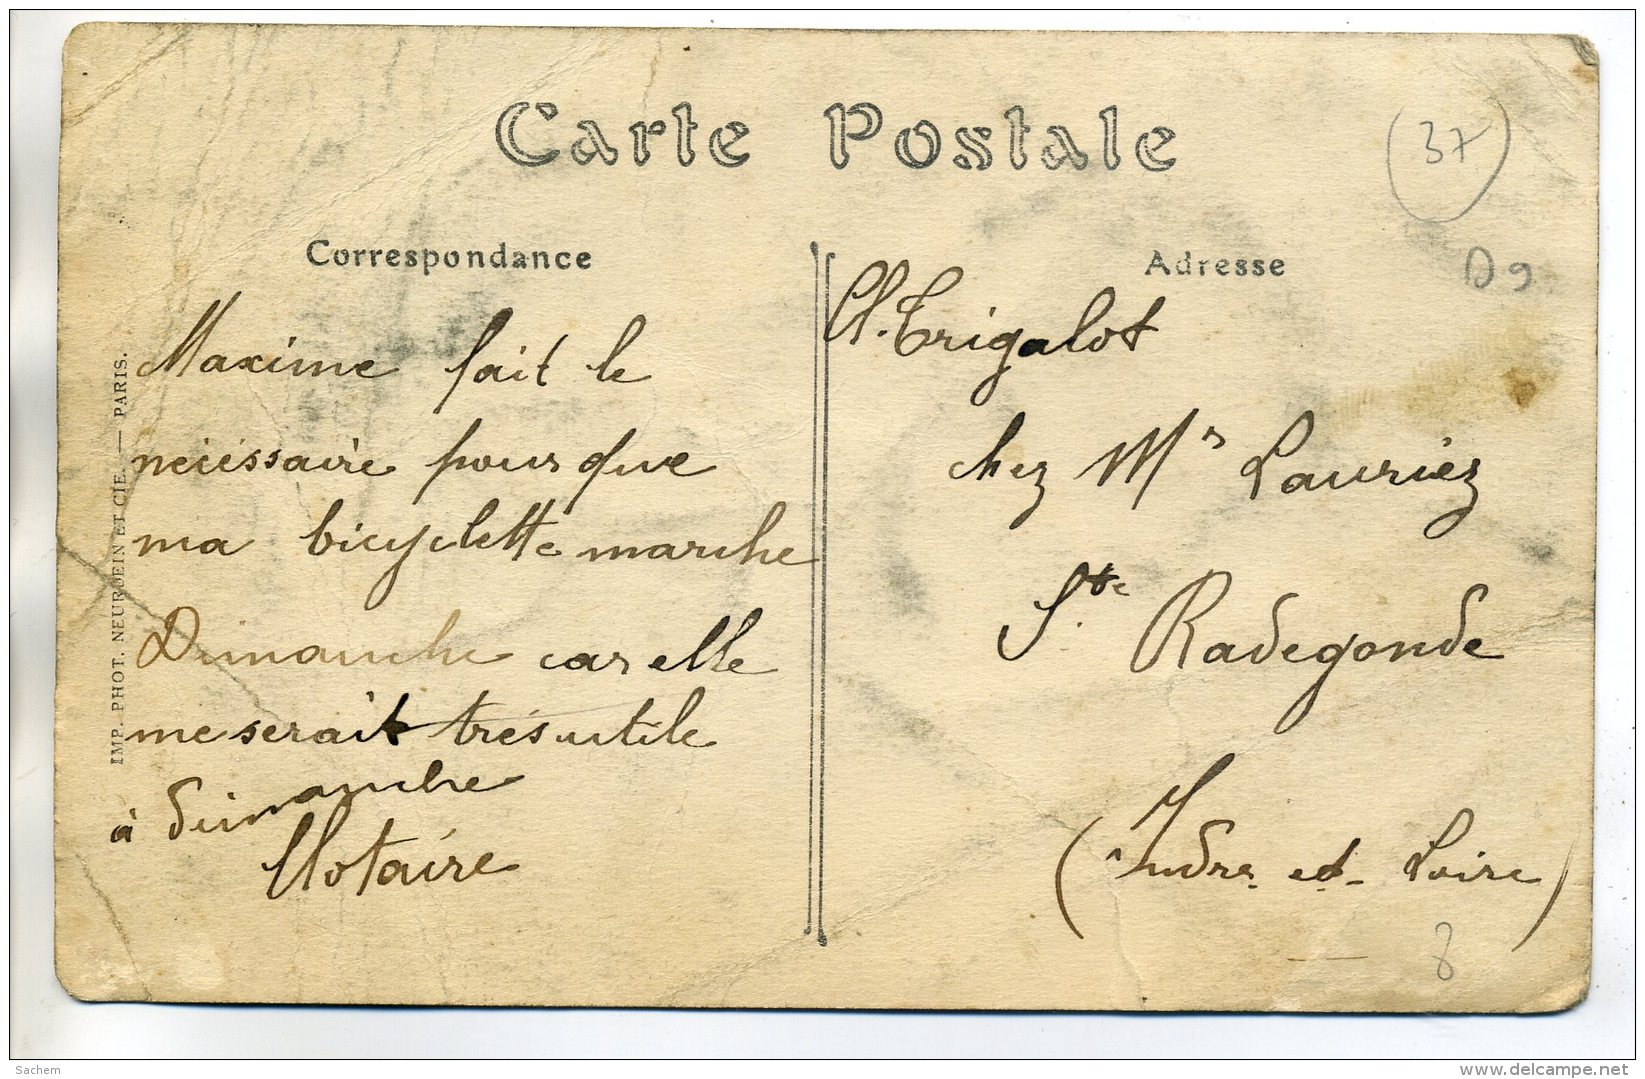 Carte Postale
37
D9
Correspondance
Maxime fait le
nécéssaire pour que
ma bicyclette marche
Dimanche car elle
me serait très utile
à dimanche
Clotaire
Adresse
Cl. Trigalot
chez Mr Lauriez
Ste Radegonde
(Indre et Loire)
8
IMP. PHOT. NEURDEIN ET CIE. — PARIS.
Sachem
delcampe.net